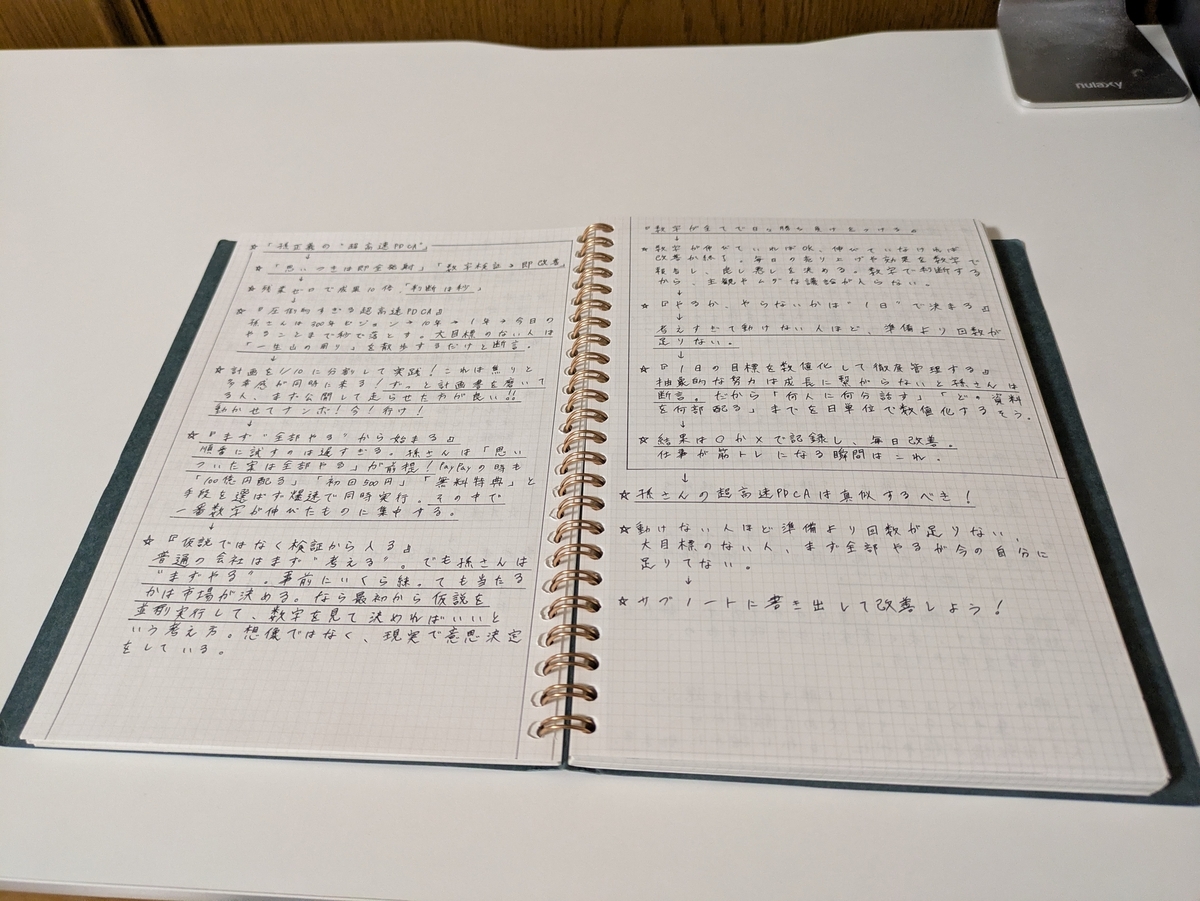 ☆「孫正義の"超高速PDCA"」
↓
☆「思いつきは即全発射」「数字検証→即改善」
↓
☆残業ゼロで成果10倍「判断は秒」
↓
☆『圧倒的すぎる超高速PDCA』
孫さんは300年ビジョン→10年→1年→今日の
やることまで秒で落とす。大目標のない人は
「一生山の周り」を散歩するだけと断言。
↓
☆計画を1/10に分割して実践！これは焦りと
多幸感が同時に来る！ずっと計画書を磨いて
る人、まず公開して走らせた方が良い!!
動かせてナンボ！今！行け！
↓
☆『まず"全部やる"から始まる』
順番に試すのは遅すぎる。孫さんは「思い
ついた案は全部やる」が前提！PayPayの時も
「100億円配る」「初回500円」「無料特典」と
手段を選ばず爆速で同時実行。その中で
一番数字が伸びたものに集中する。
↓
☆『仮説ではなく検証から入る』
普通の会社はまず"考える"。でも孫さんは
"まずやる"。事前にいくら練っても当たる
かは市場が決める。なら最初から仮説を
並列実行して、数字を見て決めればいいと
いう考え方。想像ではなく、現実で意思決定
をしている。
『数字が全てで白ら勝ち負けをつける』
↓
☆数字が伸びていればOK、伸びていなければ
改善か終了。毎日の売り上げや効果を数字で
報告し、良し悪しを決める。数字で判断する
から、主観やムダな議論が入らない。
↓
☆『やるか、やらないかは"1日"で決まる』
↓
考えすぎて動けない人ほど、準備より回数が
足りない。
↓
☆『1日の目標を数値化して徹底管理する』
抽象的な努力は成長に繋がらないと孫さんは
断言。だから「何人に何分話す」「どの資料
を何部配る」までを日単位で数値化するそう。
↓
☆結果は○か×で記録し、毎日改善。
仕事が筋トレになる瞬間はこれ。
↓
☆孫さんの超高速PDCAは真似するべき！
☆動けない人ほど準備より回数が足りない、
大目標のない人、まず全部やるが今の自分に
足りてない。
↓
☆サブノートに書き出して改善しよう！
nulaxy